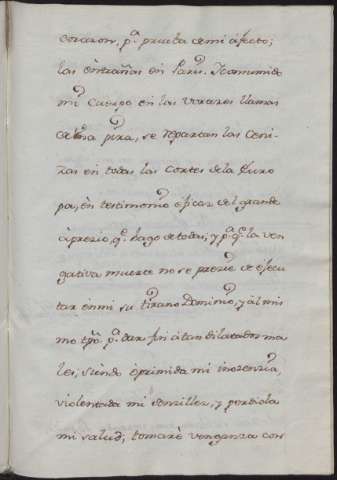 corazon, pª. prueba de mi afecto;
las entrañas en Paris. I consumido
mi Cuerpo en las vorazes llamas
de una pira, se repartan las Ceni-
zas en todas las Cortes de la Euro
pa, en testimonio eficaz del grande
aprezio, q̃. hago de todas; y pª. q̃. la ven
gativa muerte no se prezie de éxecu
tar en mi su tirano Dominio; y al mis
mo tpõ. pª. dar fin á tan dilatados ma
les; siendo oprimida mi inozenzia,
violentada mi senzillez, y perdida
mi salud; tomaré venganza con